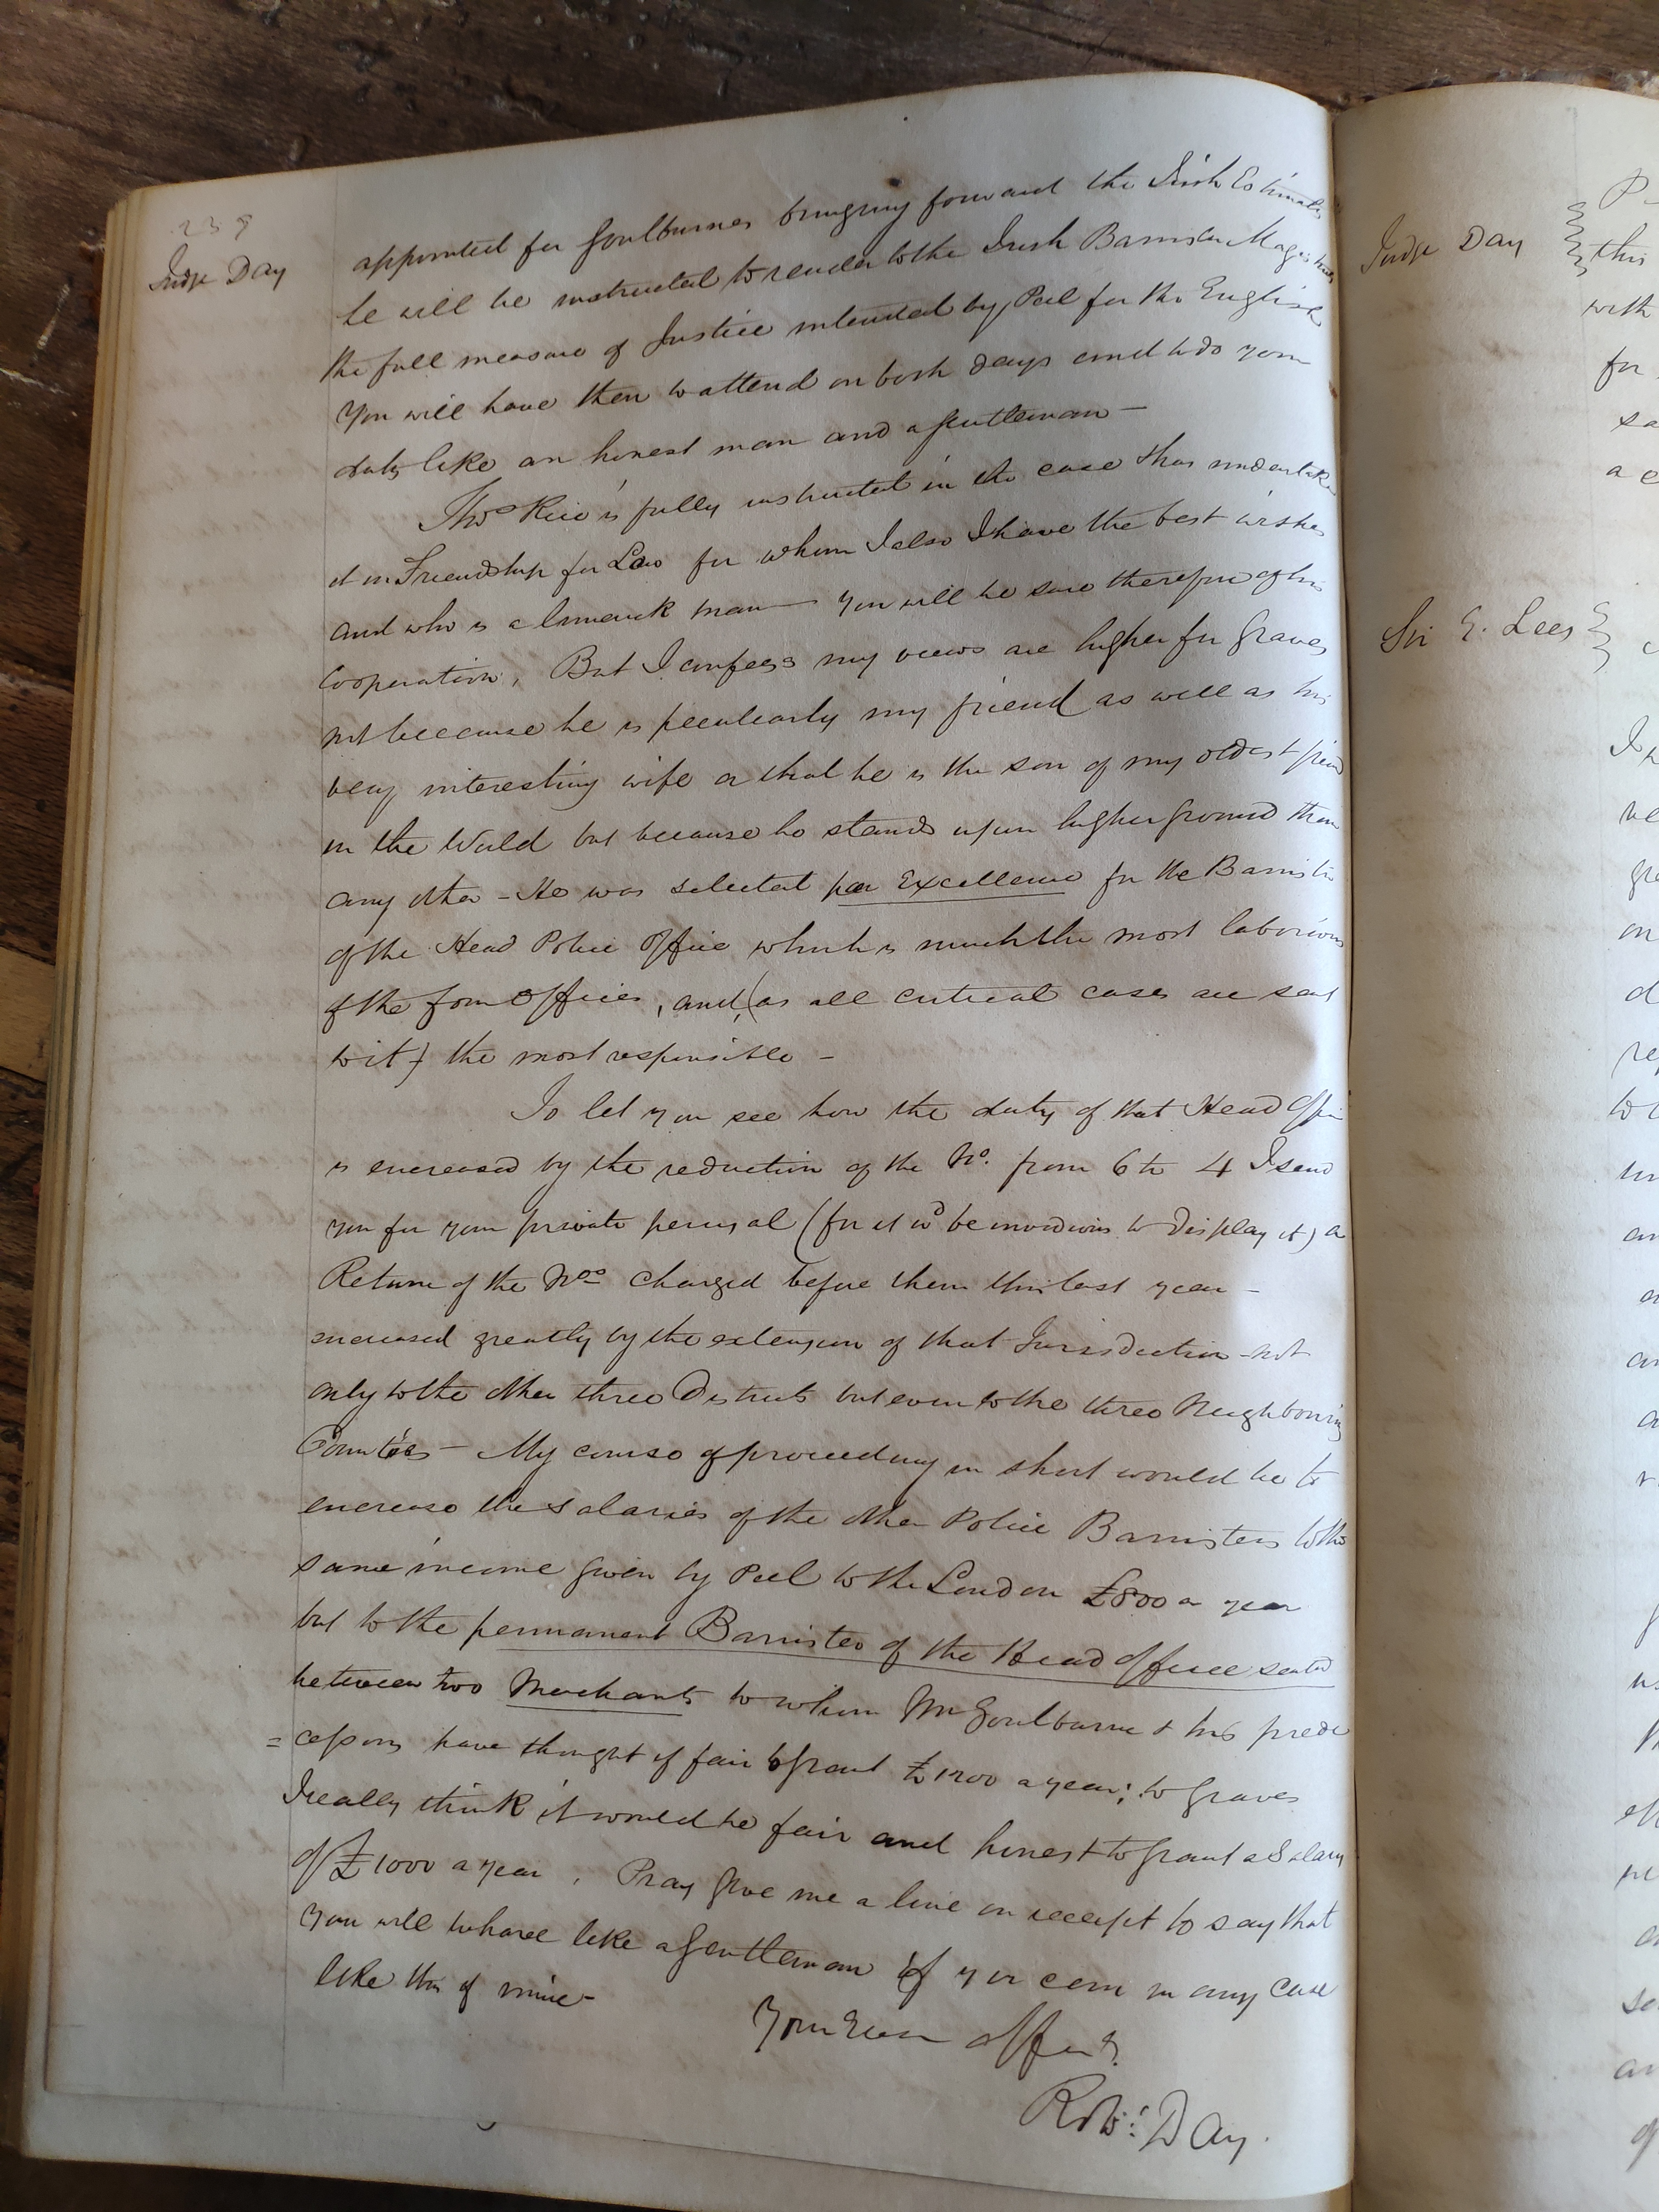 239
Judge Day
appointed for Goulburnes bringing forward the Irish Estimates
he will be instructed to render to the Irish Barrister Magistrates
the full measure of Justice intended by Peel for the English
You will have then to attend on both days and to do your
duty like an honest man and a gentleman —
Thos Rice is fully instructed in the case & has undertaken
it in Friendship for Law for whom I also I have the best wishes
and who is a Limerick man — you will be sure therefore of his
Cooperation, But I confess my views are higher for Graves
not because he is peculiarly my friend as well as his
very interesting wife or that he is the son of my oldest friend
in the World but because he stands upon higher ground than
any other - He was selected par Excellence for the Barrister
of the Head Police Office which is much the most laborious
of the four Offices, and, (as all critical cases are sent
to it) the most responsible -
To let you see how the duty of that Head Office
is encreased by the reduction of the No. from 6 to 4 I send
you for your private perusal (for it wd be invidious to display it) a
Return of the Nos charged before them this last year -
encreased greatly by the extension of that Jurisdiction - not
only to the other three Districts but even to the three Neighbouring
Counties - My course of proceeding in short would be to
encrease the Salaries of the other Police Barristers to the
same income given by Peel to the London £800 a year
but to the permanent Barrister of the Head Office seated
between two Merchants to whom Mr Goulburne & his prede
=cessors have thought it fair to grant £1200 a year; to Graves
I really think it would be fair and honest to grant a Salary
of £1000 a year. Pray give me a line on receipt to say that
You will behave like a Gentleman if you can in any case
like this of mine -
Your Ever affect.
Robt: Day.
Judge Day
P
this
with
for
sa
a c
Sir E. Lees